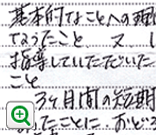 基本的なことへの理
てようだこと、又、し
指導していただいた
こと
3ヶ月間の短期
めたことに、おどろ